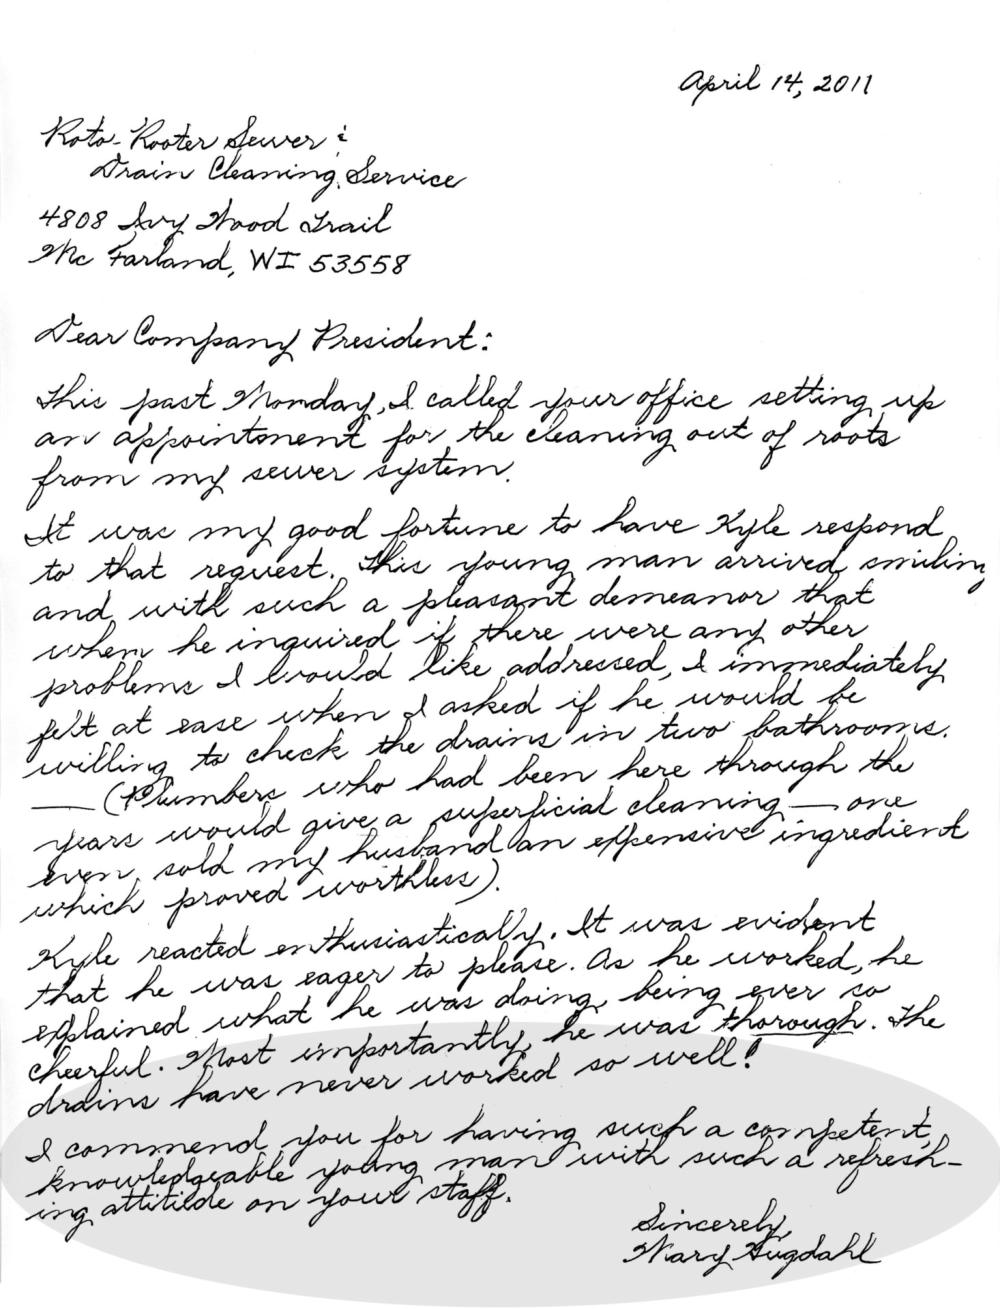 April 14, 2011
Roto-Rooter Sewer &
Drain Cleaning Service
4808 Ivy Wood Trail
Mc Farland, WI 53558
Dear Company President:
This past Monday, I called your office setting up
an appointment for the cleaning out of roots
from my sewer system.
It was my good fortune to have Kyle respond
to that request. This young man arrived smiling
and with such a pleasant demeanor that
when he inquired if there were any other
problems I would like addressed, I immediately
felt at ease when I asked if he would be
willing to check the drains in two bathrooms.
— (Plumbers who had been here through the
years would give a superficial cleaning — one
even sold my husband an expensive ingredient
which proved worthless).
Kyle reacted enthusiastically. It was evident
that he was eager to please. As he worked, he
explained what he was doing, being ever so
cheerful. Most importantly, he was thorough. The
drains have never worked so well!
I commend you for having such a competent,
knowledgeable young man with such a refresh-
ing attitide on your staff.
Sincerely,
Mary Gugdahl